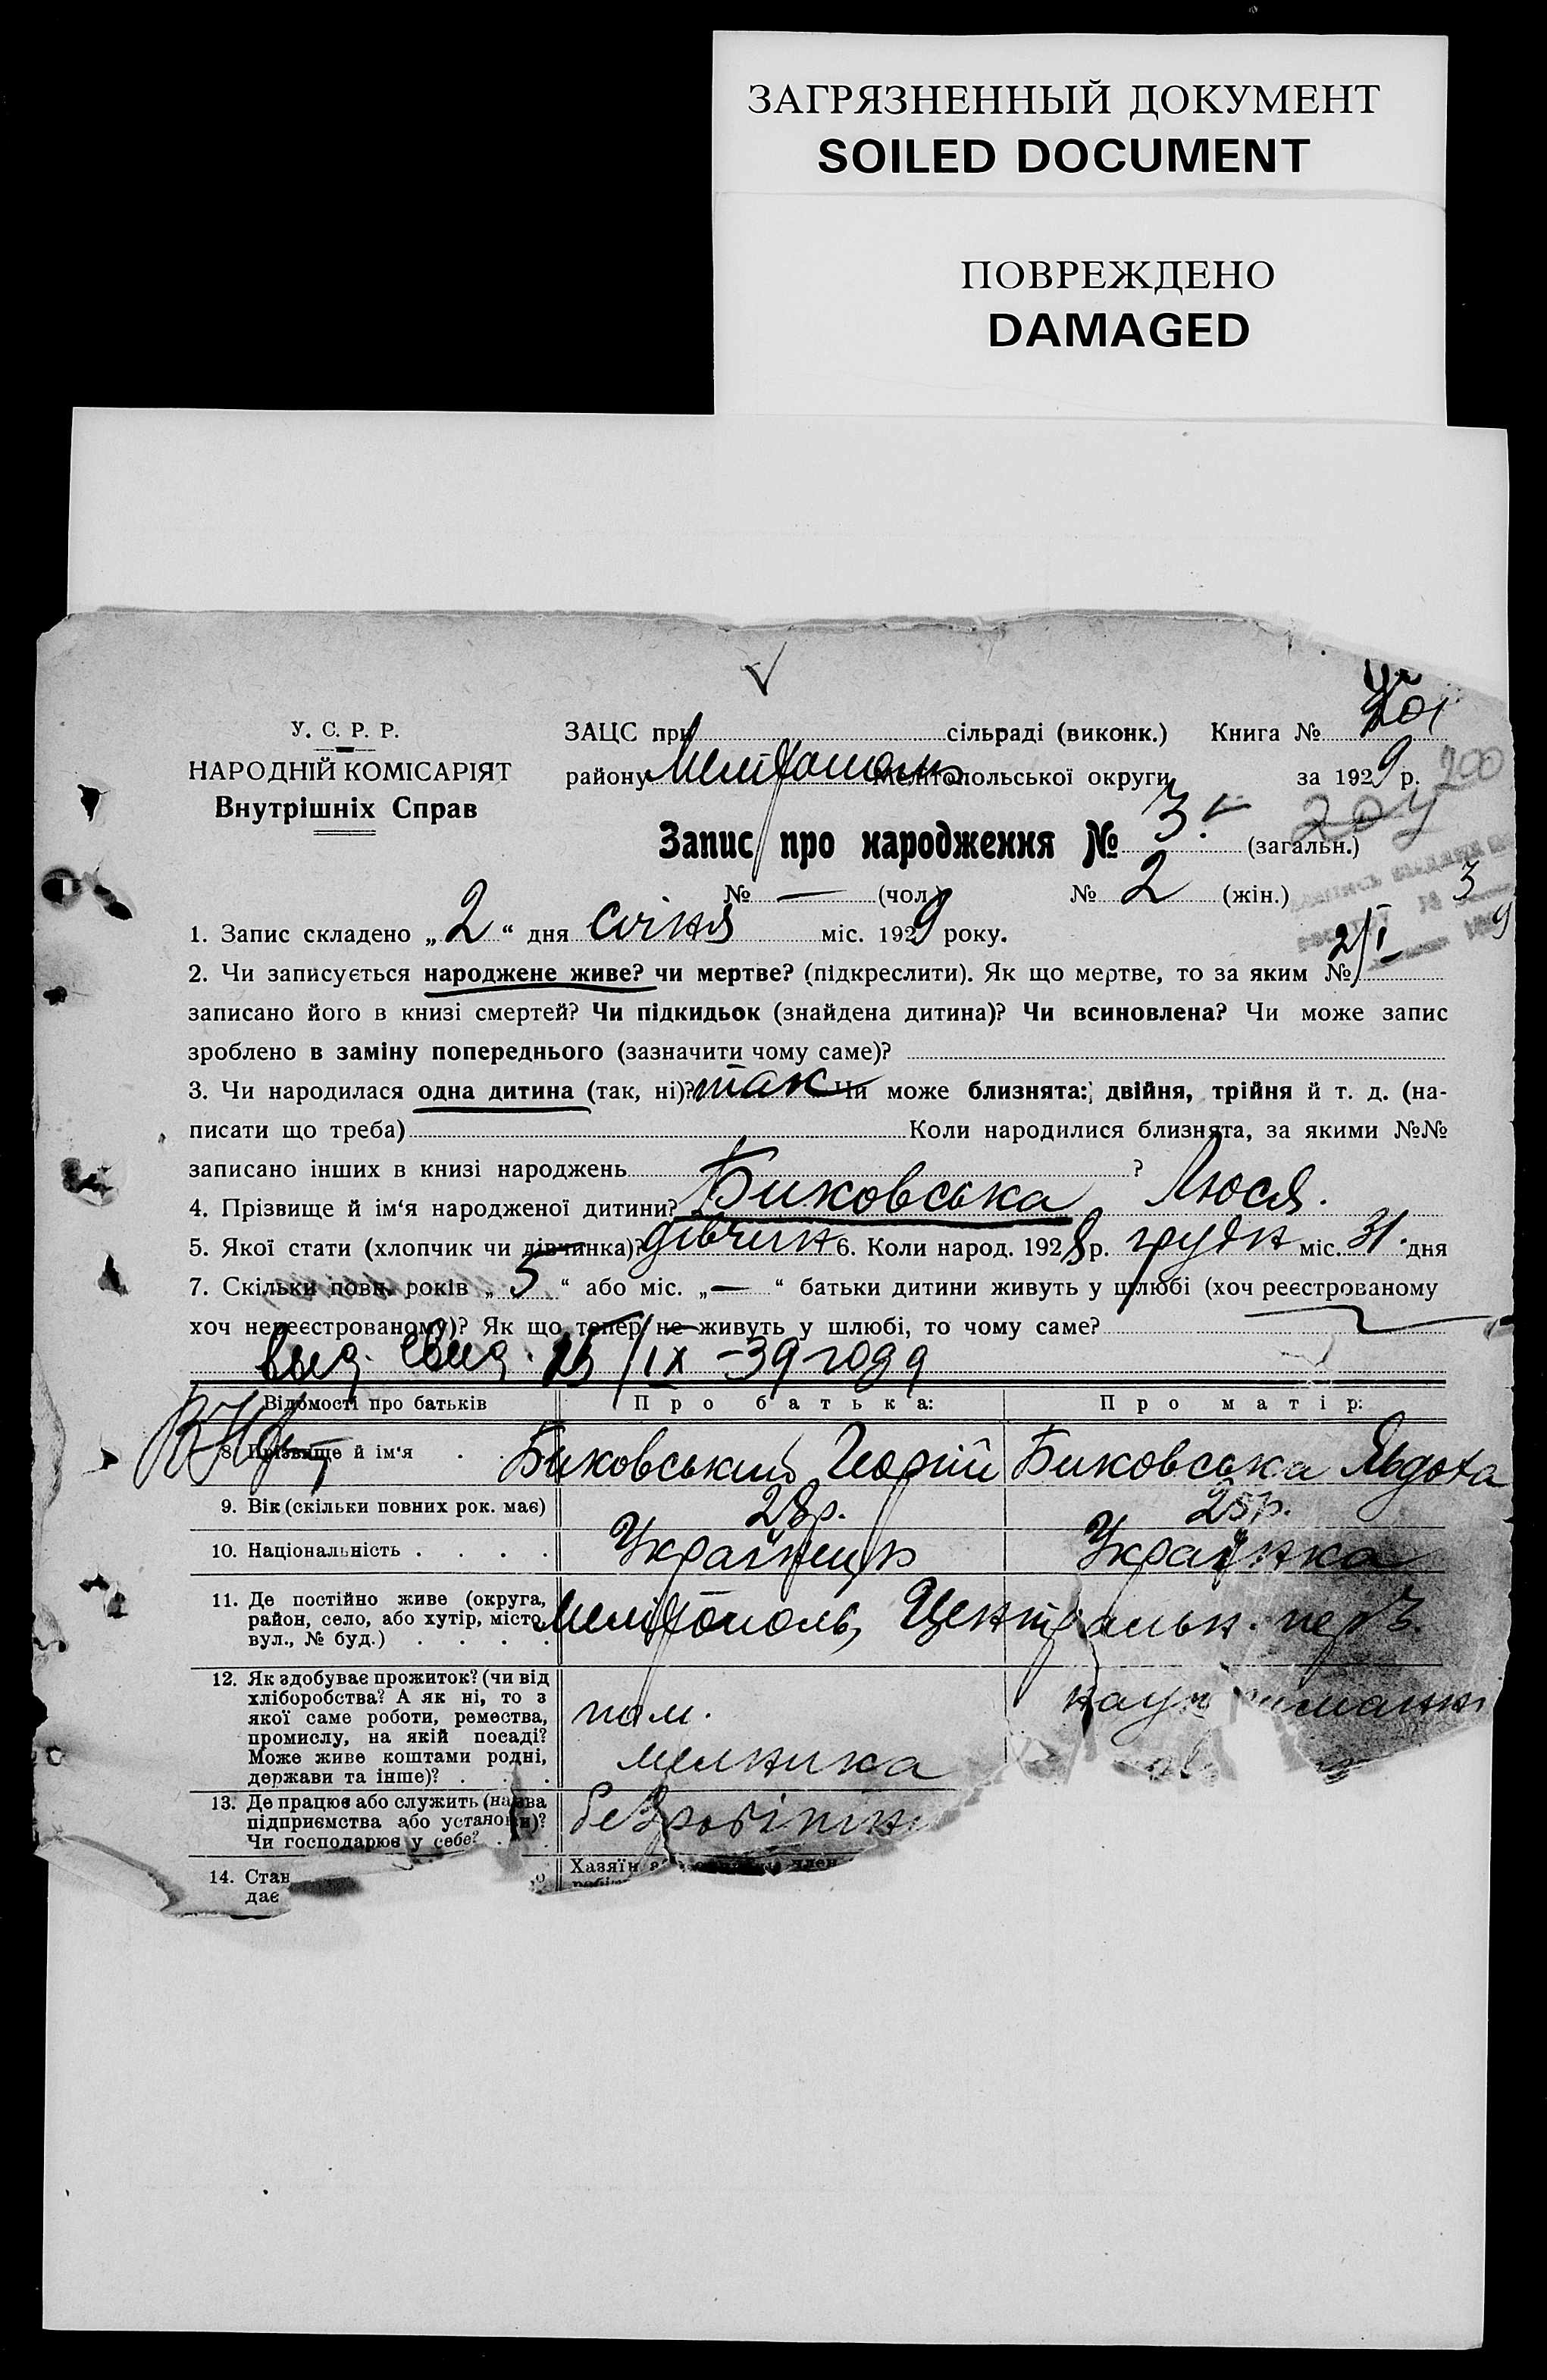 ЗАГРЯЗНЕННЫЙ ДОКУМЕНТ
SOILED DOCUMENT
ПОВРЕЖДЕНО
DAMAGED
У. С. Р. Р.
НАРОДНІЙ КОМІСАРІЯТ
Внутрішніх Справ
ЗАЦС при сільраді (виконк.) Книга № 201
району Мелітополь Мелітопольської округи за 1929 р. 200
Запис про народження № 3. (загальн.) 204
№ — (чол.) № 2 (жін.) 3
1. Запис складено „2“ дня січня міс. 1929 року. 2/I
2. Чи записується народжене живе? чи мертве? (підкреслити). Як що мертве, то за яким №
записано його в книзі смертей? Чи підкидьок (знайдена дитина)? Чи всиновлена? Чи може запис
зроблено в заміну попереднього (зазначити чому саме)?
3. Чи народилася одна дитина (так, ні)? так Чи може близнята: двійня, трійня й т. д. (на-
писати що треба) Коли народилися близнята, за якими №№
записано інших в книзі народжень ?
4. Прізвище й ім‘я народженої дитини? Биковська Люся.
5. Якої стати (хлопчик чи дівчинка)? дівчин 6. Коли народ. 1928 р. грудн міс. 31. дня
7. Скільки повн. років „5“ або міс. „—“ батьки дитини живуть у шлюбі (хоч реєстрованому
хоч нереєстрованому)? Як що тепер не живуть у шлюбі, то чому саме?
выд. свид. 25/IX – 39 года
Відомості про батьків Про батька: Про матір:
8. Прізвище й ім‘я . . Биковський Георгій Биковська Явдоха
9. Вік (скільки повних рок. має) 28 р. 25 р.
10. Національність . . . . Українець Українка
11. Де постійно живе (округа,
район, село, або хутір, місто,
вул., № буд.) . . . . Мелітополь, Центральн. пер 3.
12. Як здобуває прожиток? (чи від
хліборобства? А як ні, то з
якої саме роботи, ремества,
промислу, на якій посаді?
Може живе коштами родні,
держави та інше)? . . .
пом.
мелника
13. Де працює або служить (назва
підприємства або установи)?
Чи господарює у себе? . . .
безробітн
14. Стан
дає
Хазяїн член